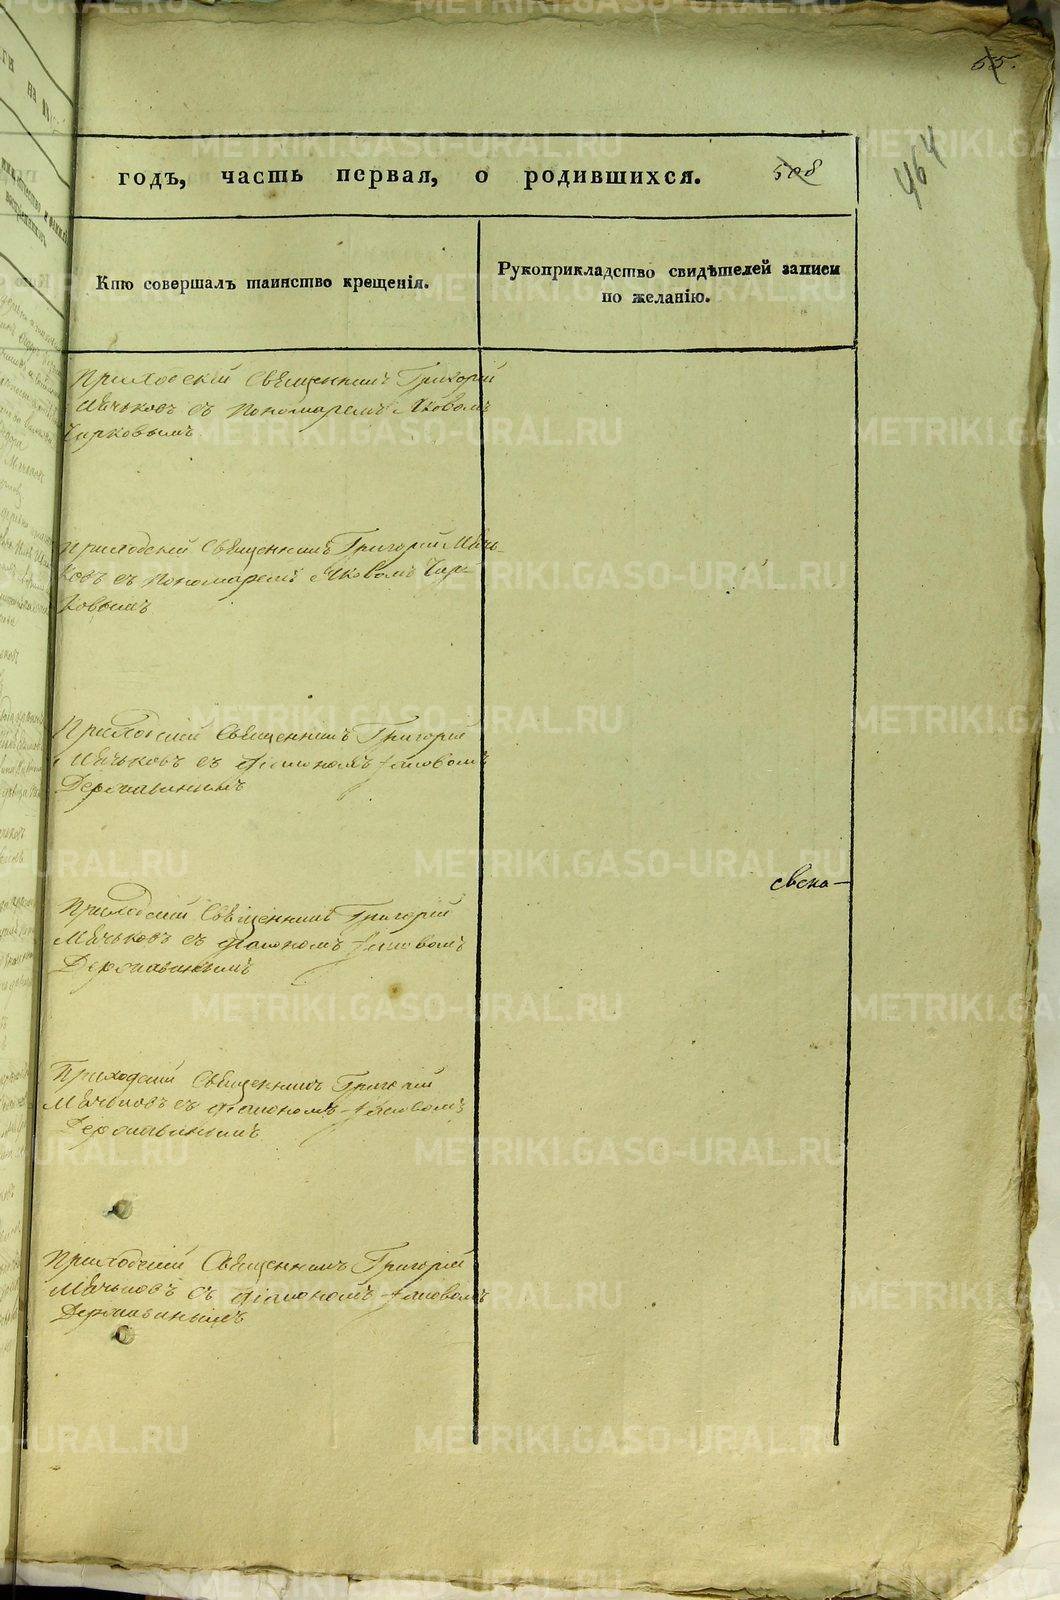 55.
464
годъ, часть первая, о родившихся. 508
Кто совершалъ таинство крещенія.
Рукоприкладство свидѣтелей записи
по желанію.
Приходскій Священникъ Григорій
Мячьковъ съ Пономаремъ Яковомъ
Чирковымъ
Приходскій Священникъ Григорій Мячь-
ковъ съ Пономаремъ Яковомъ Чир-
ковымъ
Приходскій Священникъ Григорій
Мячьковъ съ Діакономъ Іаковомъ
Державинымъ
свена—
Приходскій Священникъ Григорій
Мячьковъ съ Діакономъ Іаковомъ
Державинымъ
Приходскій Священникъ Григорій
Мячьковъ съ Діакономъ Іаковомъ
Державинымъ
Приходскій Священникъ Григорій
Мячьковъ съ Діакономъ Іаковомъ
Державинымъ
METRIKI.GASO-URAL.RU